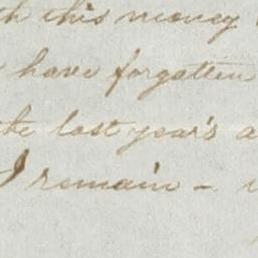 th this money
have forgotten
the last year's a
I remain –